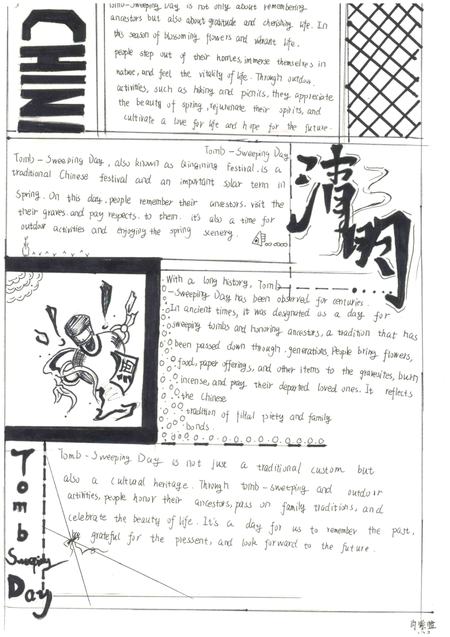 CHINE
Tomb-Sweeping Day is not only about remembering
ancestors but also about gratitude and cherishing life. In
this season of blossoming flowers and vibrant life,
people step out of their homes, immerse themselves in
nature, and feel the vitality of life. Through outdoor
activities, such as hiking and picnics, they appreciate
the beauty of spring, rejuvenate their spirits, and
cultivate a love for life and hope for the future.
Tomb-Sweeping Day
Tomb-Sweeping Day, also known as Qingming Festival, is a
traditional Chinese festival and an important solar term in
Spring. On this day, people remember their ancestors, visit the
their graves, and pay respects to them. it's also a time for
outdoor activities and enjoying the spring scenery.
清
明
With a long history, Tomb
-Sweeping Day has been observed for centuries.
In ancient times, it was designated as a day for
sweeping tombs and honoring ancestors, a tradition that has
been passed down through generations. People bring flowers,
food, paper offerings, and other items to the gravesites, burn
incense, and pray their departed loved ones. It reflects
the Chinese
tradition of filial piety and family
bonds.
Tomb
Sweeping
Day
Tomb-Sweeping Day is not just a traditional custom but
also a cultural heritage. Through tomb-sweeping and outdoor
activities, people honor their ancestors, pass on family traditions, and
celebrate the beauty of life. It's a day for us to remember the past,
grateful for the pressent, and look forward to the future.